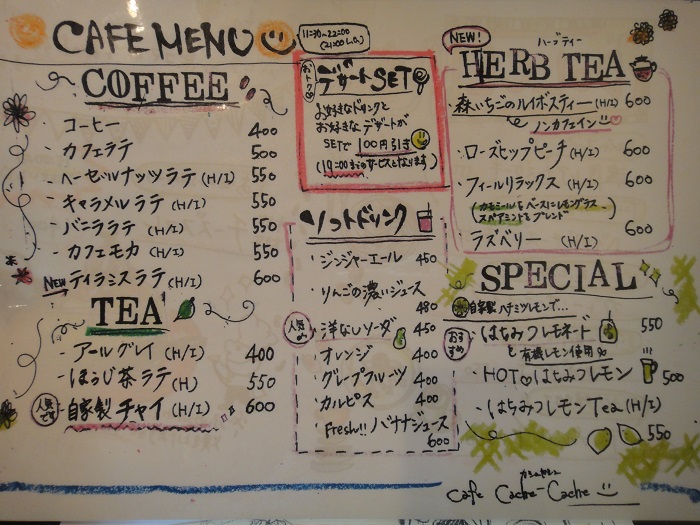 CAFE MENU
11:30~22:00
(21:00 L.O.)
COFFEE
・コーヒー 400
・カフェラテ 500
・ヘーゼルナッツラテ (H/I) 550
・キャラメルラテ (H/I) 550
・バニララテ (H/I) 550
・カフェモカ (H/I) 550
NEW ティラミスラテ (H/I) 600
TEA
・アールグレイ (H/I) 400
・ほうじ茶ラテ (H) 550
人気です
・自家製チャイ (H/I) 600
おトク♡
デザートSET
お好きなドリンクと
お好きなデザートが
SETで 100円引き
(19:00までのサービスとなります)
ソフトドリンク
・ジンジャーエール 450
・りんごの濃いジュース
480
人気♪
・洋なしソーダ 450
・オレンジ 400
・グレープフルーツ 400
・カルピス 400
・Fresh!! バナナジュース
600
NEW!
ハーブティー
HERB TEA
森いちごのルイボスティー (H/I) 600
ノンカフェイン
・ローズヒップピーチ (H/I) 600
・フィールリラックス (H/I) 600
(カモミールをベースにレモングラス
スペアミントをブレンド)
・ラズベリー (H/I) 600
SPECIAL
自家製ハチミツレモンで…
おすすめ
・はちみつレモネード 550
と有機レモン使用
・HOT♡はちみつレモン 500
・はちみつレモンTea (H/I)
550
カシュカシュ
cafe Cache-Cache